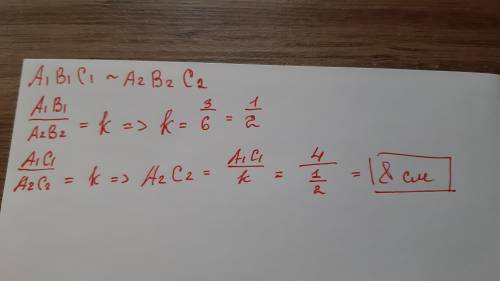 A₁B₁C₁ ~ A₂B₂C₂
A₁B₁/A₂B₂ = k => k = 3/6 = 1/2
A₁C₁/A₂C₂ = k => A₂C₂ = A₁C₁/k = 4/(1/2) = 8 см